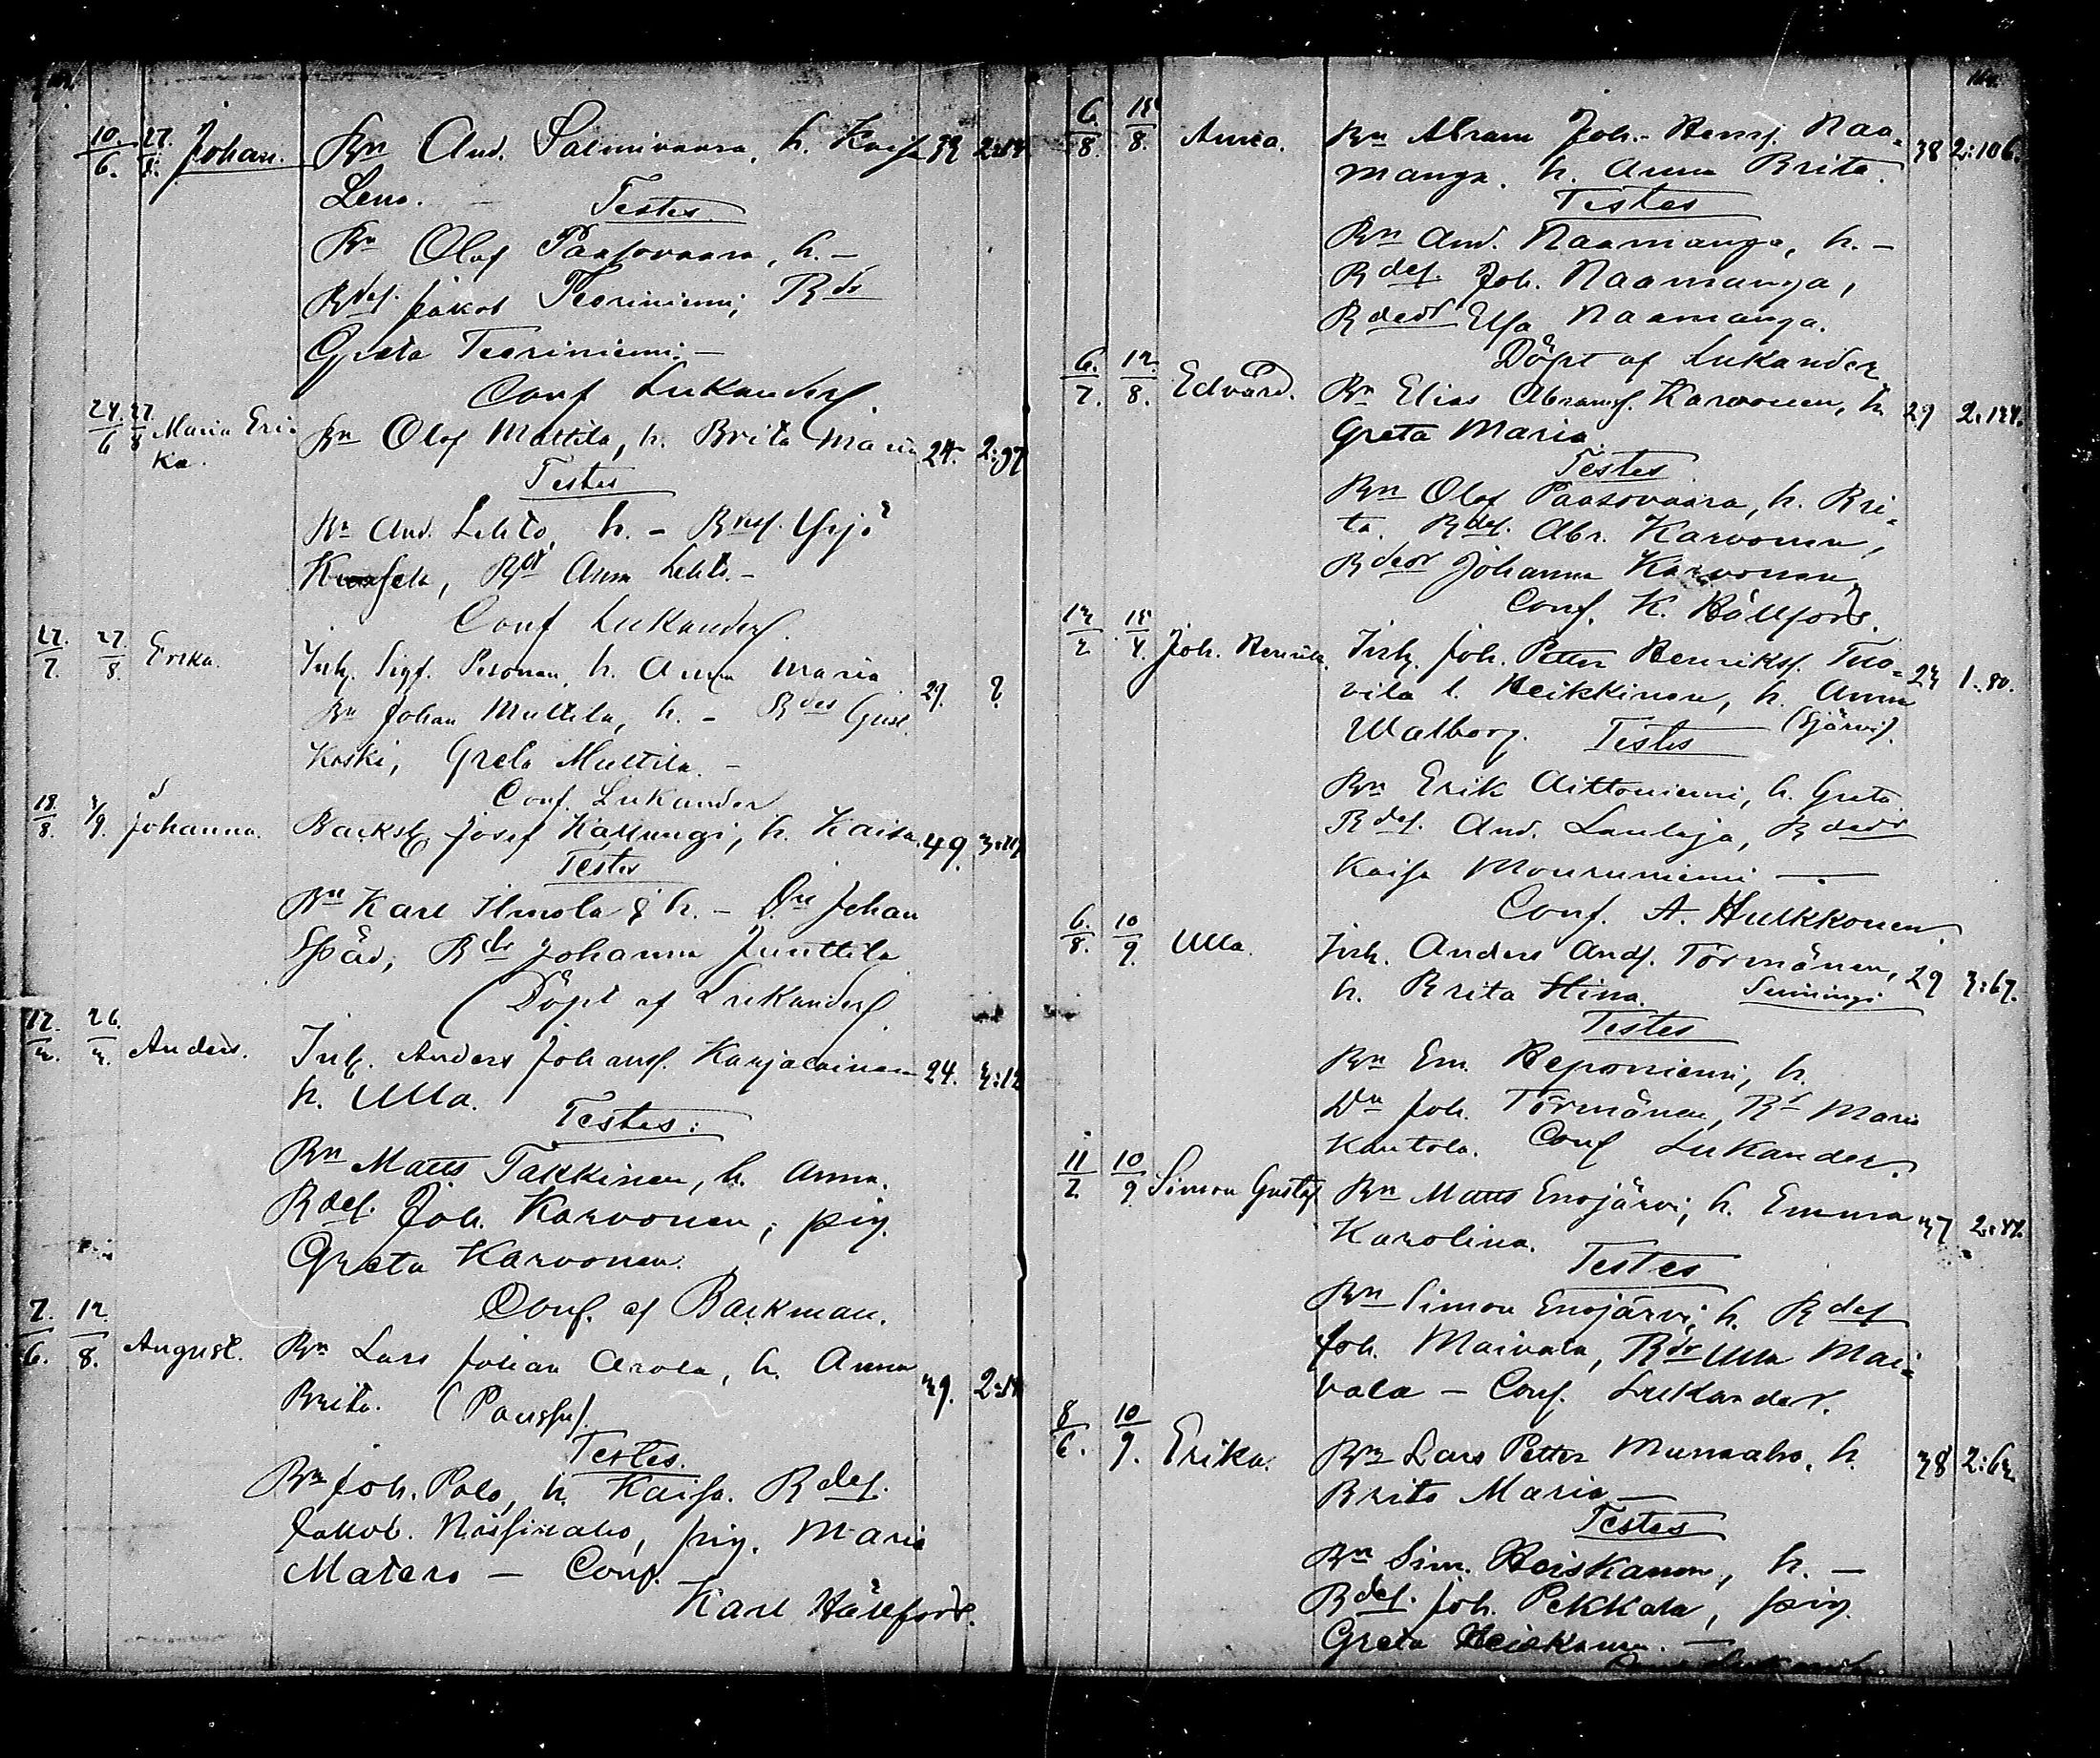 10/6. 27/8. Johan. Bn And. Salmivaara, h. Kaisa 39
Lena. Testes.
Bn Olof Paasovaara, h. –
Bdes. Jakob Teeriniemi, Bdr
Greta Teeriniemi. –
Conf Lukander.
24/6 27/8 Maria Eri- Bn Olof Mattila, h. Brita Maria 24. 2:97
ka.
Testes
Bn And. Lehto, h. – Bnes. Yrjö
Anna Lehto. –
Conf Lukander.
17/7. 27/8. Erika. Inh. Sigf. Pesonen, h. Anna Maria 29. ?
Bn Johan Multila, h. – Bdes Gust.
Koski, Greta Multila. –
Conf. Lukander
18/8. /9. Johanna. Backst. Josef Kallungi, h. Kaisa. 49.
Testes
Bn Karl Ilmola & h. – Dn Johan
Späd, Bdr Johanna Junttila
Döpt af Lukander
12/2. 26/2. Anders. Inh. Anders Johans. Karjalainen 24. 3:12
h. Ulla.
Testes:
Bn Matts Takkinen, h. Anna.
Bdes. Joh. Karvonen, pig.
Greta Karvonen.
Conf. af Backman.
7/6. 12/8. August. Bn Lars Johan Arola, h. Anna 39.
Brita. (Paussu).
Testes.
Bn Joh. Palo, h. Kaisa. Bdes.
Jakob. Nissinaho, pig. Maria
Matero – Conf.
Karl Hällfors.
6/8. 15/8. Anna. Bn Abram Joh.-Hens. Naa- 38 2:106.
manga. h. Anna Brita.
Testes
Bn And. Naamanga, h. –
Bdes. Joh. Naamanga,
Bdedr Elsa Naamanga.
Döpt af Lukander
6./7. 12./8. Edvard. Bn Elias Abrams. Karvonen, h. 29 2:124.
Greta Maria.
Testes
Bn Olof Paasovaara, h. Bri-
ta. Bdes. Abr. Karvonen,
Bdedr Johanna Karvonen
Conf. K. Hällfors.
12/2 15/4. Joh. Henrik. Inh. Joh. Petter Henriks. Tuo- 23 1:80.
vila l. Heikkinen, h. Anna
Walborg. Testes
Bn Erik Aittoniemi, h. Greta.
Bdes. And. Lauluja, Bdedr
Kaisa Mourumiemi –
Conf. A. Hulkkonen.
6./8. 10/9. Ulla. Inh. Anders Ands. Törmänen, 29 3:67.
h. Brita Stina.
Testes
Bn Em. Reponiemi, h.
Dn Joh. Törmänen, Bd Maria
Kantola. Conf Lukander.
11/7. 10/9 Simon Gustaf Bn Matts Enojärvi, h. Emma 37
Karolina.
Testes
Bn Simon Enojärvi, h. Bdes
Joh. Maivala, Bdr Ulla Mai-
vala – Conf. Lukander.
8/6. 10/9. Erika. Bn Lars Petter Mursaho, h. 38 2:62.
Brita Maria –
Testes
Bn Sim. Heiskanen, h. –
Bdes. Joh. Pekkala, pig.
Greta Heiskanen. –
Conf Lukander.